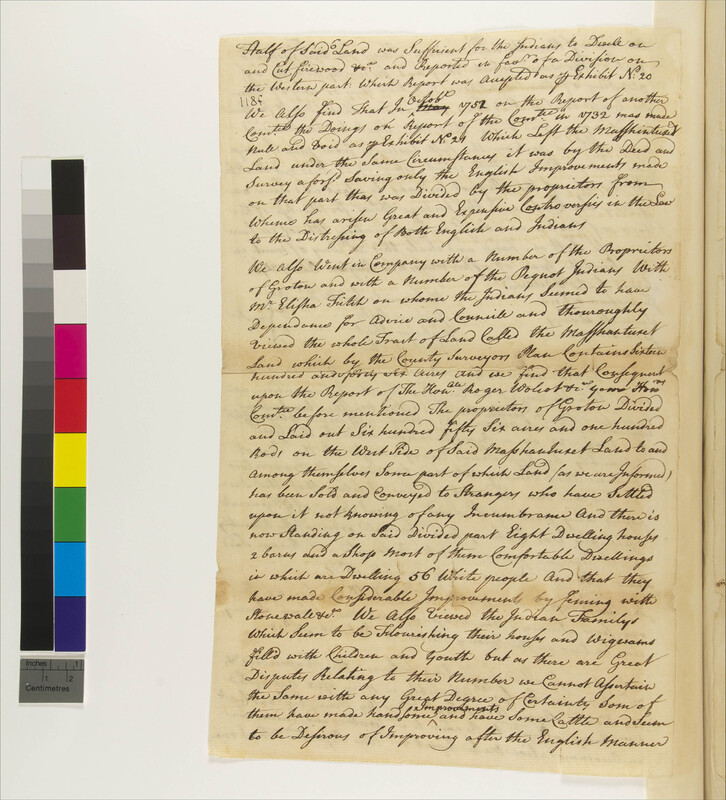 Half of Said Land was Sufficient for the Indians to Dwell on
and Cut firewood &c. and Reported in favr. of a Division on
the Western part: Which Report was Accepted as pr Exhibit No: 20
118f
We Also find That In Octobr. May 1752 on the Report of another
Comtee. the Doings on Report of the Comtee in 1732 was made
Null and Void as pr Exhibit No. 21 Which Left the Masshantuset
Land under the Same Circumstances it was by the Deed and
Survey afors'd Saving only the English Improvements made
on that part that was Divided by the proprietors from
Whence has arisen Great and Expensive Controversies in the Law
to the Distressing of Both English and Indians
We also Went in Company with a Number of the Proprietors
of Groton and with a Number of the Pequot Indians With
Mr. Elisha Fitch on whome the Indians Seemed to have
Dependance for Advice and Councile and thouroughly
Viewed the whole Tract of Land Called the Masshantuset
Land which by the County Surveyors Plan Contains Sixteen
hundred and forty six Acres and we find that Consequent
upon the Report of The Honble. Roger Wolcot &c. Honrs.
Comtee. before mentioned The proprietors of Groton Divided
and Laid out Six hundred fifty Six acres and one hundred
Rods on the West Side of Said Masshantuset Land to and
Among themselves Some part of which Land (as we are Informed)
has been Sold and Conveyed to Strangers who have Settled
upon it not knowing of any Incumbrance And there is
now Standing on Said Divided part Eight Dwelling houses
2 barns and a Shop Most of them Comfortable Dwellings
in which are Dwelling 56 White people And that they
have made Considerable Improvements by fencing with
Stonewall &c. We Also Viewed the Indian Familys
Which Seem to be Flourishing their houses and Wigwams
filled with Children and Youth but as there are Great
Disputes Relating to their Number we Cannot Assertain
the Same with any Great Degree of Certainty Som of
them have made handsome Improvements and have Some Cattle and Seem
to be Desirous of Improving after the English Manner
Inches
1
2
Centimetres